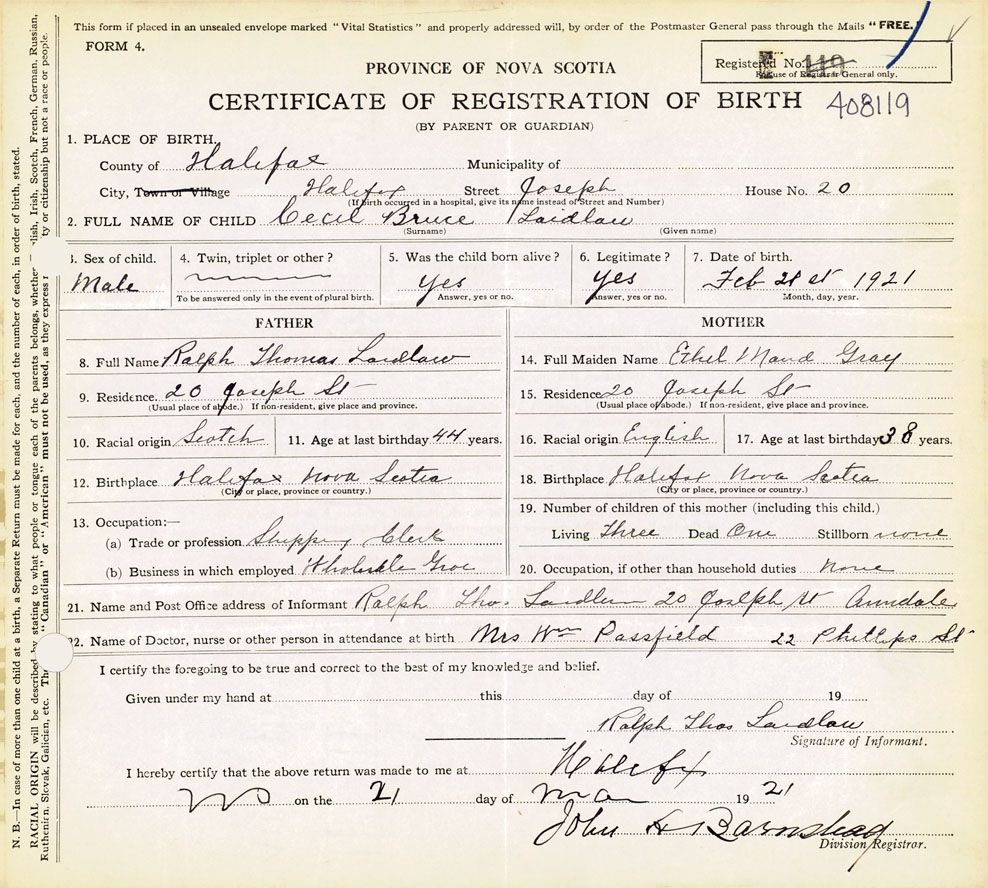 This form if placed in an unsealed envelope marked "Vital Statistics" and properly addressed will, by order of the Postmaster General pass through the Mails "FREE."
FORM 4.
Registered No. 119
For use of Registrar General only.
PROVINCE OF NOVA SCOTIA
CERTIFICATE OF REGISTRATION OF BIRTH 408119
(BY PARENT OR GUARDIAN)
1. PLACE OF BIRTH,
County of Halifax Municipality of
City, Town or Village Halifax Street Joseph House No. 20
(If birth occurred in a hospital, give its name instead of Street and Number)
2. FULL NAME OF CHILD Cecil Bruce Laidlaw
(Surname) (Given name)
3. Sex of child. 4. Twin, triplet or other? 5. Was the child born alive? 6. Legitimate? 7. Date of birth.
Male yes yes Feb 21st 1921
To be answered only in the event of plural birth. Answer, yes or no. Answer, yes or no. Month, day, year.
FATHER MOTHER
8. Full Name Ralph Thomas Laidlaw 14. Full Maiden Name Ethel Maud Gray
9. Residence. 20 Joseph St 15. Residence 20 Joseph St
(Usual place of abode.) If non-resident, give place and province. (Usual place of abode.) If non-resident, give place and province.
10. Racial origin Scotch 11. Age at last birthday 44 years. 16. Racial origin English 17. Age at last birthday 38 years.
12. Birthplace Halifax Nova Scotia 18. Birthplace Halifax Nova Scotia
(City or place, province or country.) (City or place, province or country.)
13. Occupation:— 19. Number of children of this mother (including this child.)
(a) Trade or profession Shipping Clerk Living Three Dead One Stillborn none
(b) Business in which employed Wholesale Groc 20. Occupation, if other than household duties None
21. Name and Post Office address of Informant Ralph Tho. Laidlaw 20 Joseph St Armdale
22. Name of Doctor, nurse or other person in attendance at birth Mrs Wm Passfield 22 Phillips St
I certify the foregoing to be true and correct to the best of my knowledge and belief.
Given under my hand at this day of 19
Ralph Thos Laidlaw
Signature of Informant.
I hereby certify that the above return was made to me at Halifax
on the 21 day of Mar 1921
John H Barnstead
Division Registrar.
N. B.—In case of more than one child at a birth, a Separate Return must be made for each, and the number of each, in order of birth, stated.
RACIAL ORIGIN will be described by stating to what people or tongue each of the parents belongs, whether Irish, Scotch, French, German, Russian,
Ruthenian, Slovak, Galician, etc. "Canadian" or "American" must not be used, as they express ty or citizenship but not a race or people.